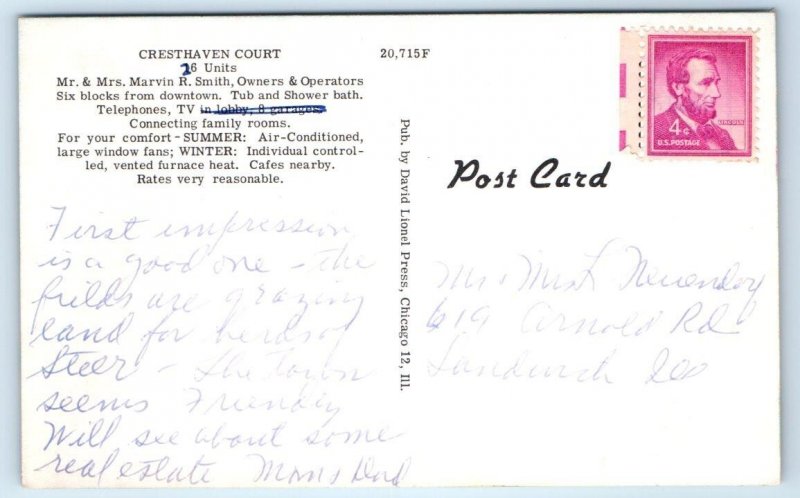 CRESTHAVEN COURT
26 Units
Mr. & Mrs. Marvin R. Smith, Owners & Operators
Six blocks from downtown. Tub and Shower bath.
Telephones, TV in lobby, 8 garages.
Connecting family rooms.
For your comfort - SUMMER: Air-Conditioned,
large window fans; WINTER: Individual control-
led, vented furnace heat. Cafes nearby.
Rates very reasonable.
First impression
is a good one - the
fields are grazing
land for herds of
Steer - The town
seems Friendly
Will see about some
real estate Mom & Dad
Pub. by David Lionel Press, Chicago 12, Ill.
20,715F
LINCOLN
4¢
U.S. POSTAGE
Post Card
Mr & Mrs
619 Arnold Rd
Sandwich Ill